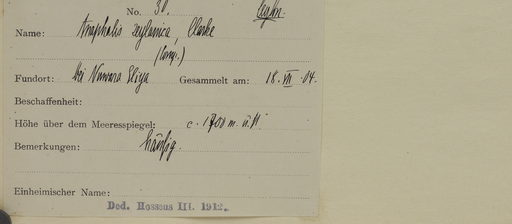 No. 30. Ceylon.
Name: Anaphalis zeylanica, Clarke
(Comp.)
Fundort: bei Nuwara Eliya Gesammelt am: 18. VII. 04.
Beschaffenheit:
Höhe über dem Meeresspiegel: c. 1900 m. ü. M.
Bemerkungen: häufig.
Einheimischer Name:
Ded. Hosseus III. 1912.